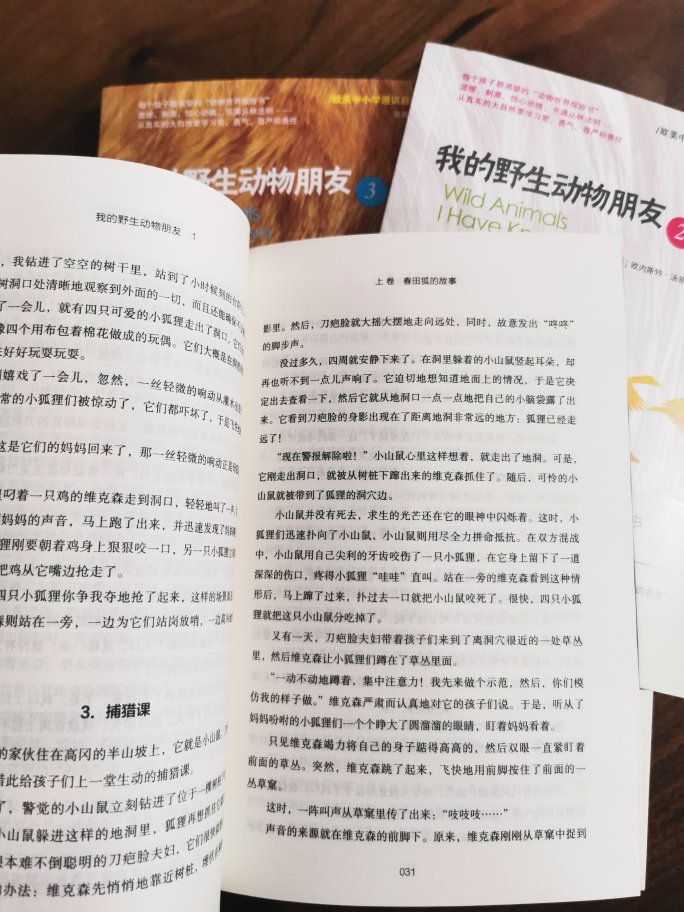 每个孩子都渴望的“动物世界探险书”
温暖、刺激、惊心动魄,充满丛林法则……
从真实的大自然里学习爱、勇气、尊严和责任
/欧美中小学通识
野生动物朋友
3
每个孩子都渴望的“动物世界探险书”
温暖、刺激、惊心动魄,充满丛林法则……
从真实的大自然里学习爱、勇气、尊严和责任
/欧美中
我的野生动物朋友
2
Wild Animals
I Have Kn
欧内斯特·汤
我的野生动物朋友 1
,我钻进了空空的树干里,站到了小时候刻的
树洞口处清晰地观察到外面的一切,而且还能确保
了一会儿,就有四只可爱的小狐狸走出了洞口,它们
像四个用布包着棉花做成的玩偶。它们大概是在洞
来好好玩耍玩耍。
嬉戏了一会儿,忽然,一丝轻微的响动从灌木
常的小狐狸们被惊动了,它们都吓坏了,于是飞
这是它们的妈妈回来了,那一丝轻微的响动正是
叼着一只鸡的维克森走到洞口,轻轻地叫了一声
妈妈的声音,马上跑了出来,并迅速发现了
狸刚要朝着鸡身上狠狠咬一口,另一只小狐狸
把鸡从它嘴边抢走了。
四只小狐狸你争我夺地抢了起来,这样的场景
森则站在一旁,一边为它们站岗放哨,一边
3. 捕猎课
的家伙住在高冈的半山坡上,它就是小山鼠,
借此给孩子们上一堂生动的捕猎课。
了,警觉的小山鼠立刻钻进了位于一棵树桩
小山鼠躲进这样的地洞里,狐狸再想抓住它
根本难不倒聪明的刀疤脸夫妇,它们很快就
的办法:维克森先悄悄地靠近树桩,埋伏
上卷 春田狐的故事
影里。然后,刀疤脸就大摇大摆地走向远处,同时,故意发出“咚咚”
的脚步声。
没过多久,四周就安静下来了。在洞里躲着的小山鼠竖起耳朵,却
再也听不到一点儿声响了。它迫切地想知道地面上的情况,于是它决
定出去查看一下,然后它就从地洞口一点一点地把自己的小脑袋露了出
来。它看到刀疤脸的身影出现在了距离地洞非常远的地方:狐狸已经走
远了!
“现在警报解除啦!”小山鼠心里这样想着,就走出了地洞。可是,
它刚走出洞口,就被从树桩下蹿出来的维克森抓住了。随后,可怜的小
山鼠就被带到了狐狸的洞穴边。
小山鼠并没有死去,求生的光芒还在它的眼神中闪烁着。这时,小
狐狸们迅速扑向了小山鼠,小山鼠则用尽全力拼命抵抗。在双方混战
中,小山鼠用自己尖利的牙齿咬伤了一只小狐狸,在它身上留下了一道
深深的伤口,疼得小狐狸“哇哇”直叫。站在一旁的维克森看到这种情
形后,马上蹿了过来,扑过去一口就把小山鼠咬死了。很快,四只小狐
狸就把这只小山鼠分吃掉了。
又有一天,刀疤脸夫妇带着孩子们来到了离洞穴很近的一处草丛
里,然后维克森让小狐狸们蹲在了草丛里面。
“一动不动地蹲着,集中注意力!我先来做个示范,然后,你们模
仿我的样子做。”维克森严肃而认真地对它的孩子们说。于是,听从了
妈妈吩咐的小狐狸们一个个睁大了圆溜溜的眼睛,盯着妈妈看着。
只见维克森竭力将自己的身子踮得高高的,然后双眼一直紧盯着
前面的草丛。突然,维克森跳了起来,飞快地用前脚按住了前面的一
丛草窠。
这时,一阵叫声从草窠里传了出来:“吱吱吱……”
声音的来源就在维克森的前脚下。原来,维克森刚刚从草窠中捉到
031